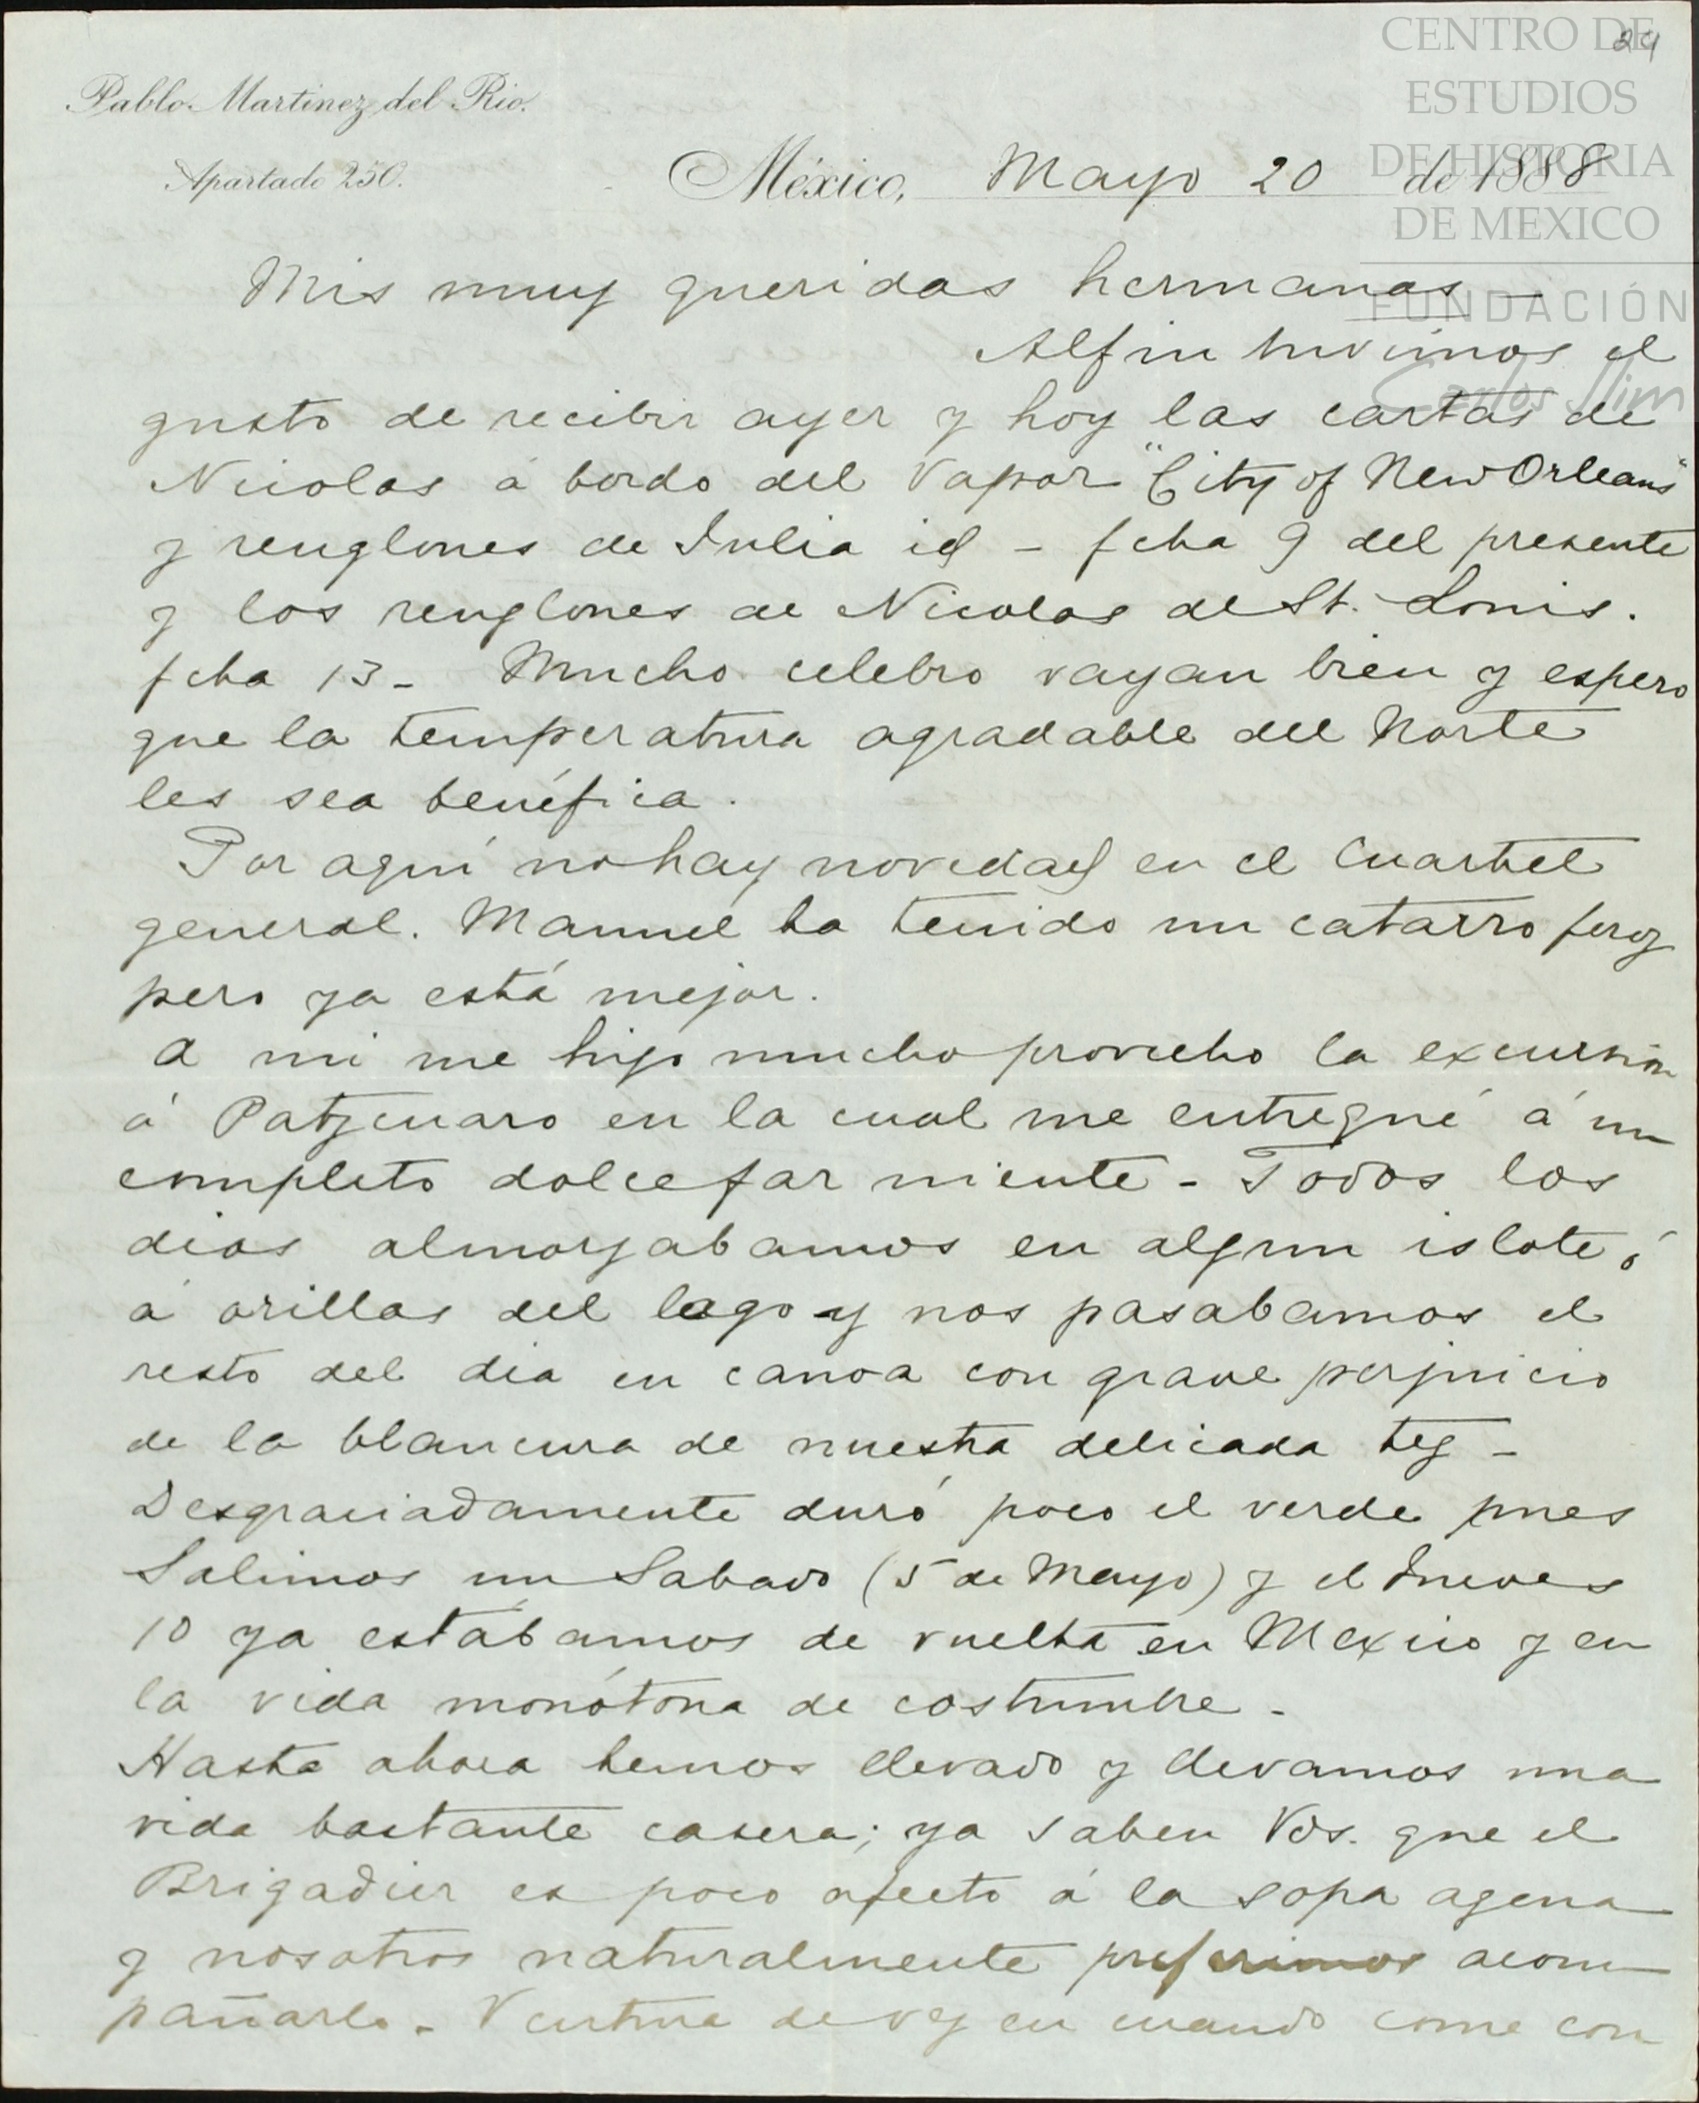 24
CENTRO DE
ESTUDIOS
DE HISTORIA
DE MEXICO
FUNDACIÓN
Carlos Slim
Pablo Martinez del Rio.
Apartado 250.
México, Mayo 20 de 1888
Mis muy queridas hermanas —
Alfin tuvimos el
gusto de recibir ayer y hoy las cartas de
Nicolas á bordo del vapor "City of New Orleans"
y renglones de Julia id - fcha 9 del presente
y los renglones de Nicolas de St. Louis.
fcha 13 - Mucho celebro vayan bien y espero
que la temperatura agradable del Norte
les sea benéfica.
Por aquí no hay novedad en el Cuartel
general. Manuel ha tenido un catarro feroz
pero ya está mejor.
A mi me hizo mucho provecho la excursion
á Patzcuaro en la cual me entregué á un
completo dolce far niente - Todos los
dias almorzabamos en algun islote ó
á orillas del lago y nos pasabamos el
resto del dia en canoa con grave perjuicio
de la blancura de nuestra delicada tez -
Desgraciadamente duró poco el verde pues
Salimos un Sabado (5 de Mayo) y el Jueves
10 ya estábamos de vuelta en Mexico y en
la vida monótona de costumbre -
Hasta ahora hemos llevado y llevamos una
vida bastante casera; ya saben Vds. que el
Brigadier es poco afecto á la sopa agena
y nosotros naturalmente preferimos acom
pañarlo - Ventura de vez en cuando come con